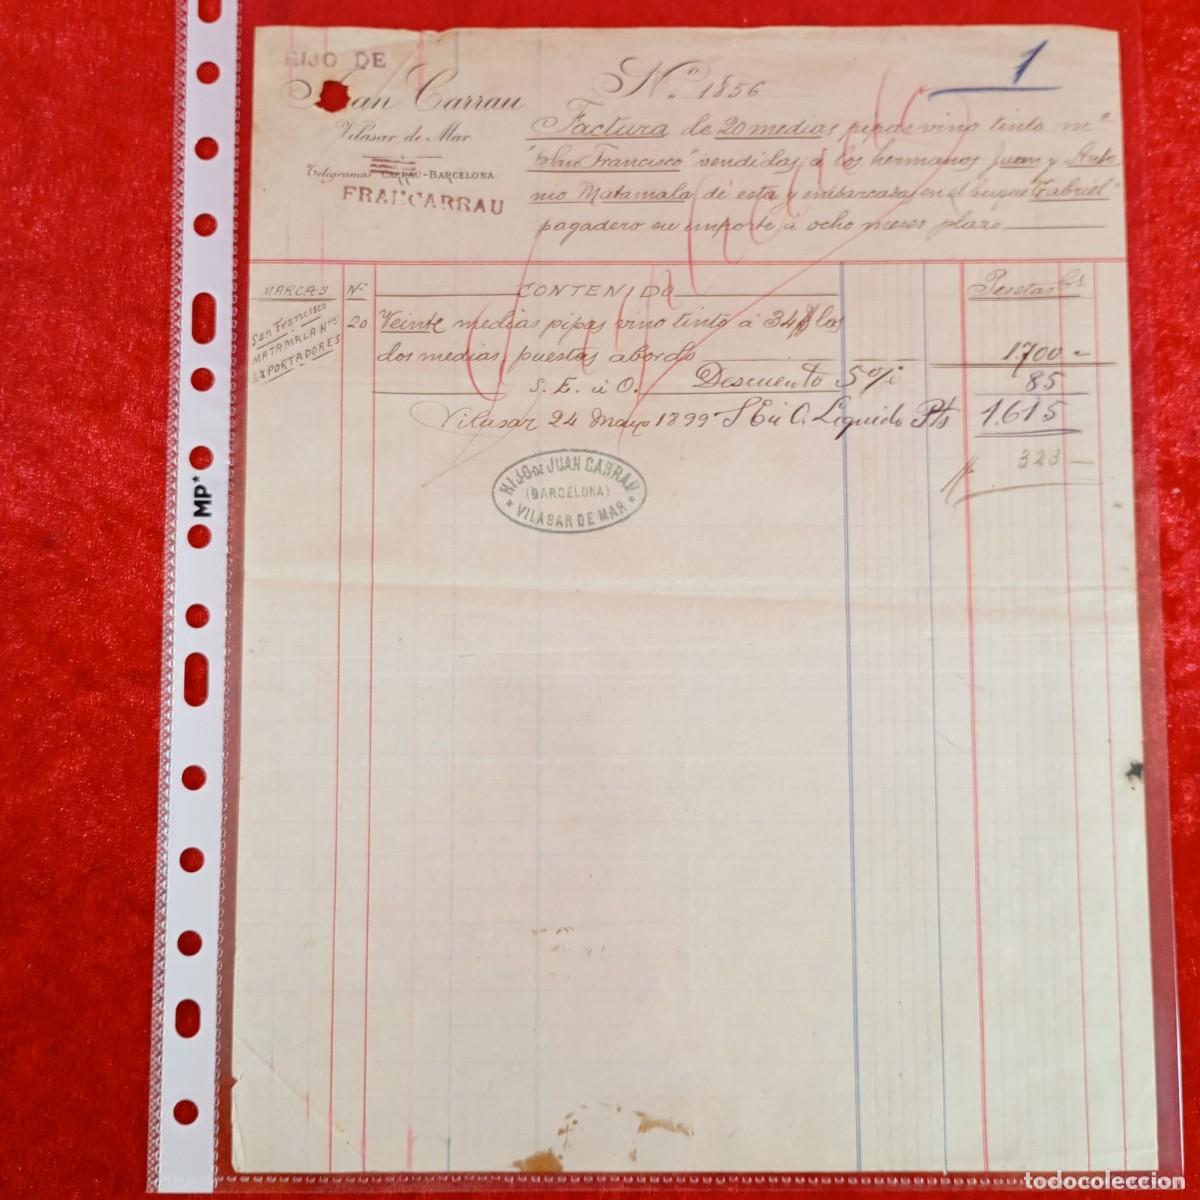 HIJO DE
Juan Carrau
Vilasar de Mar
Telégramas CARRAU-BARCELONA
FRANCARRAU
N.º 1856
1
Factura de 20 medias pipas vino tinto m.ª
"San Francisco" vendidas a los hermanos Juan y Anto
nio Matamala de esta y embarcadas en el buque "Gabriel"
pagadero su importe á ocho meses plazo
MARCAS Nº CONTENIDO Pesetas Cs
San Francisco
MATAMALA Hnos
EXPORTADORES
20 Veinte medias pipas vino tinto á 34 $ las
dos medias, puestas abordo 1.700 "
S. E. ú O. Descuento 5 % 85
Vilasar 24 Mayo 1899 S E ú O. Liquido Pts 1.615
$ 323
HIJO DE JUAN CARRAU
(BARCELONA)
* VILASAR DE MAR *
MP*
todocoleccion